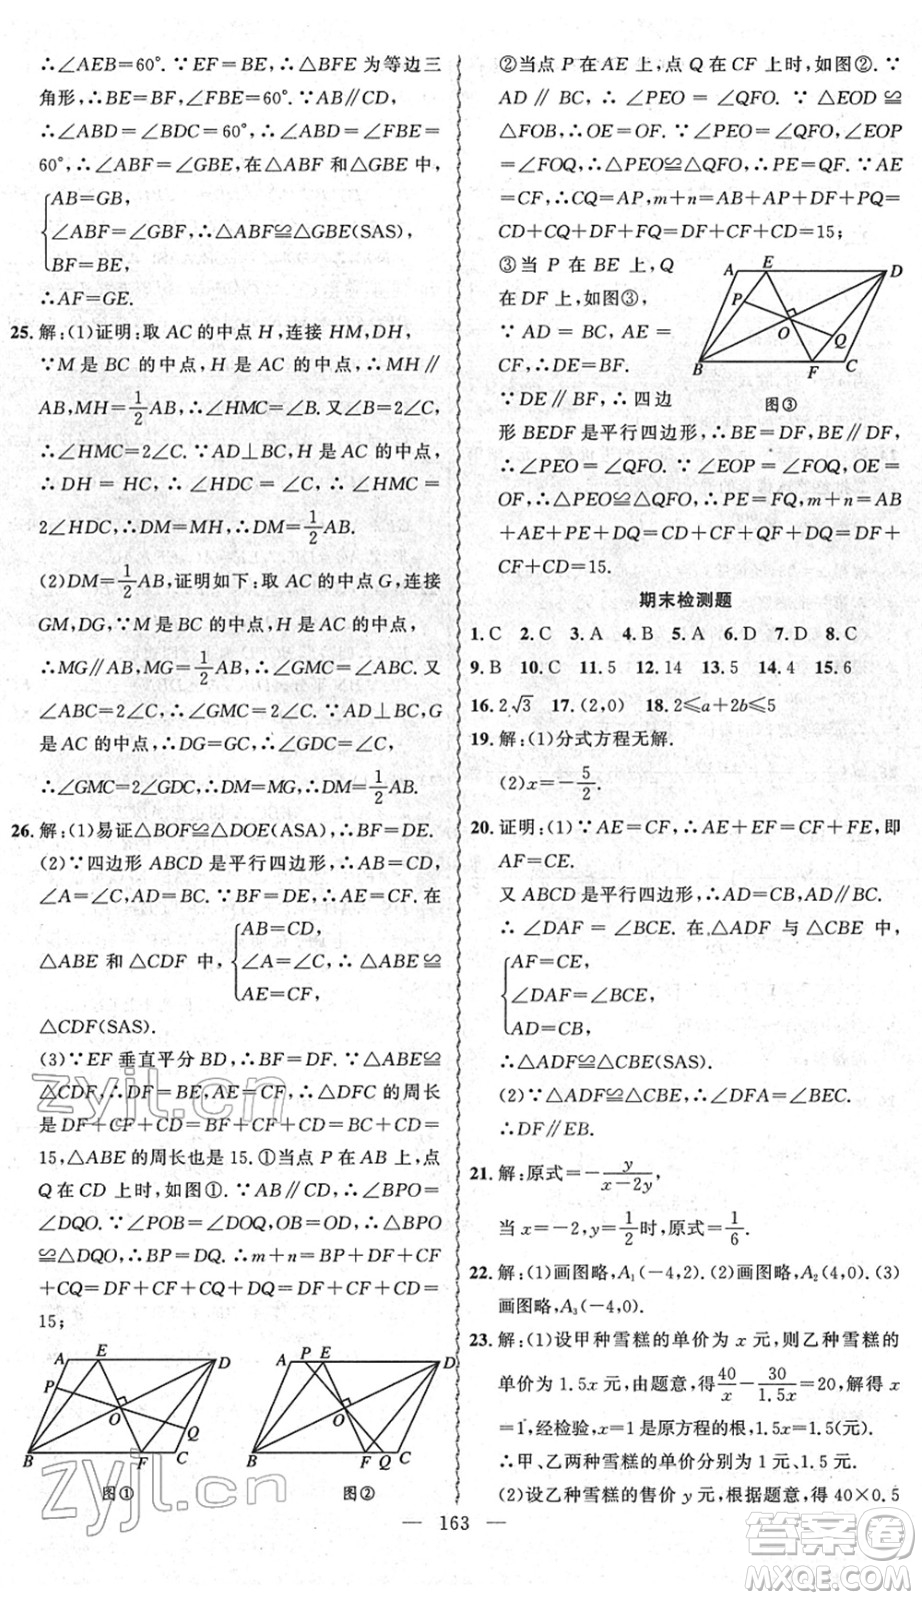 ∴∠AEB=60°.∵EF=BE,∴△BFE 为等边三
角形,∴BE=BF,∠FBE=60°.∵AB∥CD,
∴∠ABD=∠BDC=60°,∴∠ABD=∠FBE=
60°,∴∠ABF=∠GBE,在△ABF 和△GBE 中,
AB=GB,
∠ABF=∠GBF,∴△ABF≌△GBE(SAS),
BF=BE,
∴AF=GE.
25.解:(1)证明:取 AC 的中点 H,连接 HM,DH,
∵M 是 BC 的中点,H 是 AC 的中点,∴MH∥
AB,MH=1/2AB,∴∠HMC=∠B.又∠B=2∠C,
∴∠HMC=2∠C.∵AD⊥BC,H 是 AC 的中点,
∴DH = HC,∴∠HDC = ∠C,∴∠HMC =
2∠HDC,∴DM=MH,∴DM=1/2AB.
(2)DM=1/2AB,证明如下:取 AC 的中点 G,连接
GM,DG,∵M 是 BC 的中点,G 是 AC 的中点,
∴MG∥AB,MG=1/2AB,∴∠GMC=∠ABC.又
∠ABC=2∠C,∴∠GMC=2∠C.∵AD⊥BC,G
是 AC 的中点,∴DG=GC,∴∠GDC=∠C,
∴∠GMC=2∠GDC,∴DM=MG,∴DM=1/2AB.
26.解:(1)易证△BOF≌△DOE(ASA),∴BF=DE.
(2)∵四边形 ABCD 是平行四边形,∴AB=CD,
∠A=∠C,AD=BC.∵BF=DE,∴AE=CF.在
△ABE 和△CDF 中,
AB=CD,
∠A=∠C,∴△ABE≌
AE=CF,
△CDF(SAS).
(3)∵EF 垂直平分 BD,∴BF=DF.∵△ABE≌
△CDF,∴DF=BE,AE=CF,∴△DFC 的周长
是 DF+CF+CD=BF+CF+CD=BC+CD=
15,∴△ABE 的周长也是 15.①当点 P 在 AB 上,点
Q 在 CD 上时,如图①.∵AB∥CD,∴∠BPO=
∠DQO.∵∠POB=∠DOQ,OB=OD,∴△BPO
≌△DQO,∴BP=DQ,∴m+n=BE+DF+CF
+CQ=DF+CF+CQ+DQ=DF+CF+CD=
15;
A E D P O Q B F C
图①
A P E D O B F Q C
图②
②当点 P 在 AE 上,点 Q 在 CF 上时,如图②.∵
AD∥BC,∴∠PEO=∠QFO.∵△EOD≌
△FOB,∴OE=OF.∵∠PEO=∠QFO,∠EOP
=∠FOQ,∴△PEO≌△QFO,∴PE=QF.∵AE
=CF,∴CQ=AP,m+n=AB+AP+DF+PE=
CD+CQ+DF+FQ=DF+CF+CD=15;
③当 P 在 BE 上,Q
在 DF 上,如图③,
∵AD = BC,AE =
CF,∴DE=BF.
∵DE∥BF,∴四边
A E D P O Q B F C
图③
形 BEDF 是平行四边形,∴BE=DF,BE∥DF,
∴∠PEO=∠QFO.∵∠EOP=∠FOQ,OE=
OF,∴△PEO≌△QFO,∴PE=FQ,m+n=AB
+AE+PE+DQ=CD+CF+QF+DQ=DF+
CF+CD=15.
期末检测题
1.C 2.C 3.A 4.B 5.A 6.D 7.D 8.C
9.B 10.C 11.5 12.14 13.5 14.4 15.6
16.2√3 17.(2,0) 18.2≤a+2b≤5
19.解:(1)分式方程无解.
(2)x=-5/2.
20.证明:(1)∵AE=CF,∴AE+EF=CF+FE,即
AF=CE.
又 ABCD 是平行四边形,∴AD=CB,AD∥BC.
∴∠DAF = ∠BCE.在△ADF 与△CBE 中,
AF=CE,
∠DAF=∠BCE,
AD=CB,
∴△ADF≌△CBE(SAS).
(2)∵△ADF≌△CBE,∴∠DFA=∠BEC.
∴DF∥EB.
21.解:原式=-y/(x-2y),
当 x=-2,y=1/2时,原式=1/6.
22.解:(1)画图略,A₁(-4,2).(2)画图略,A₂(4,0).(3)
画图略,A₃(-4,0).
23.解:(1)设甲种雪糕的单价为 x 元,则乙种雪糕的
单价为 1.5x 元,由题意,得40/x-30/1.5x=20,解得 x
=1,经检验,x=1 是原方程的根,1.5x=1.5(元).
∴甲、乙两种雪糕的单价分别为 1 元、1.5 元.
(2)设乙种雪糕的售价 y 元,根据题意,得 40×0.5
— 163 —
zyjl.cn
zyjl.cn
答案卷
MXQE.COM